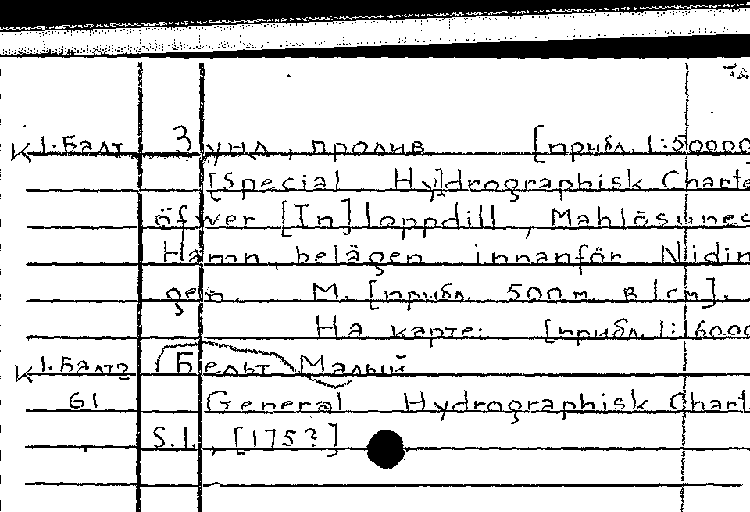 К 1:Балт Зунд, пролив [прибл. 1:50000
[Special Hy]drographisk Charte
öfwer [In]loppdill, Mahlösunes
Hamn belägen innanför Nidin
gen. М. [прибл. 500 m в 1 cm].
На карте: [прибл. 1:16000
К 1:Балт2 Бельт Малый
61 General Hydrographisk Chart
S.l., [175?]